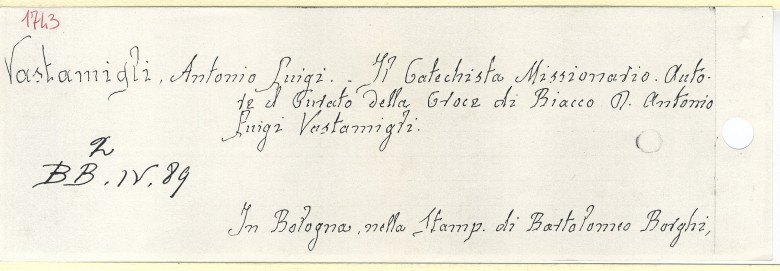 1743
Vastamigli, Antonio Luigi. - Il Catechista Missionario. Auto-
re il Curato della Croce di Biacco D. Antonio
Luigi Vastamigli.
2
BB. IV. 89
In Bologna, nella Stamp. di Bartolomeo Borghi,